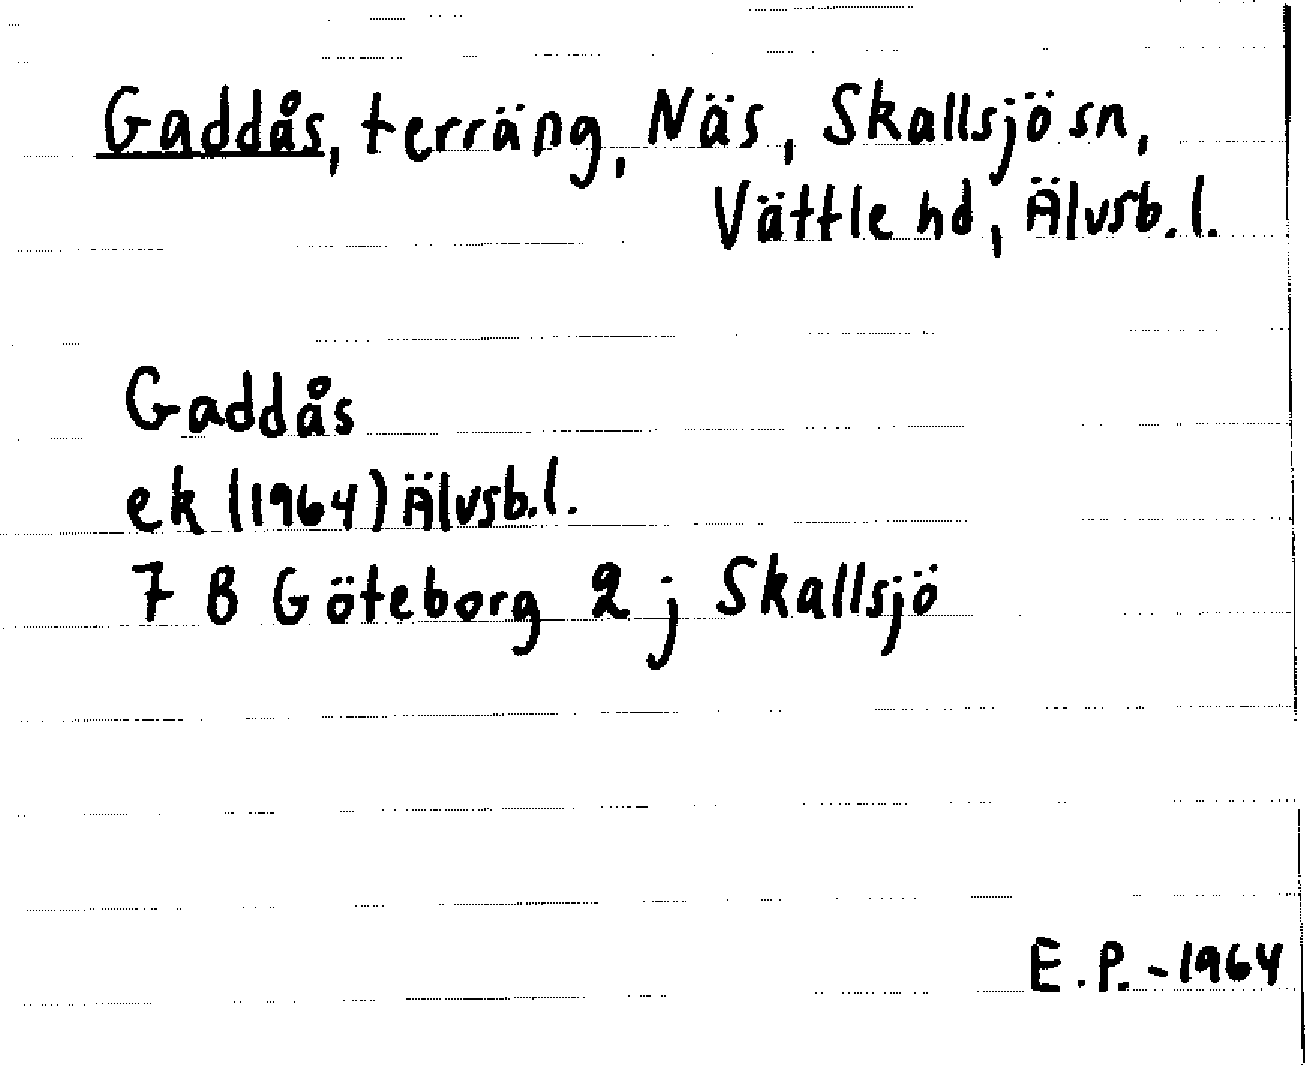 Gaddås, terräng, Näs, Skallsjö sn,
Vättle hd, Älvsb. l.
Gaddås
ek (1964) Älvsb. l.
7 B Göteborg 2 j Skallsjö
E. P. - 1964